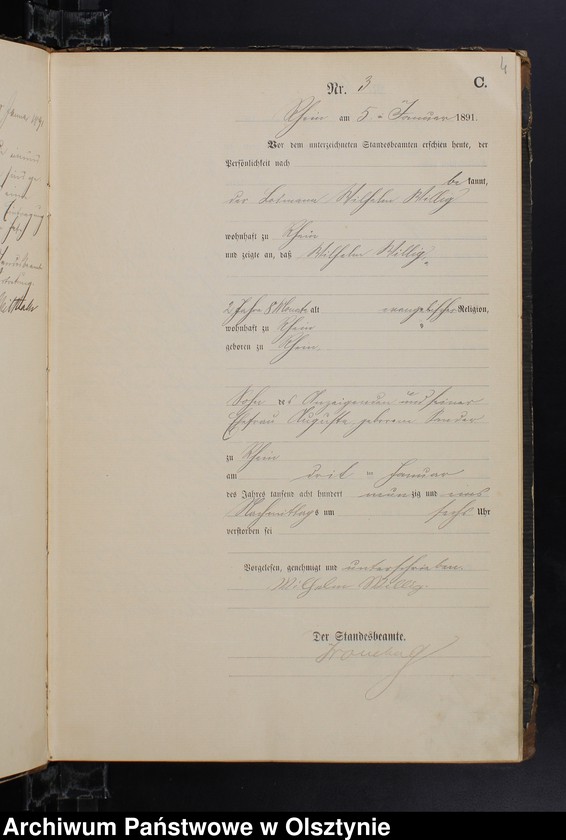 4
Nr. 3 C.
Rhein am 5. Januar 1891.
Vor dem unterzeichneten Standesbeamten erschien heute, der
Persönlichkeit nach
be kannt,
der Wilhelm Willig
wohnhaft zu Rhein
und zeigte an, daß Wilhelm Willig,
2 Jahre 8 Monate alt evangelischer Religion,
wohnhaft zu Rhein
geboren zu Rhein,
Sohn des Anzeigenden und seiner
Ehefrau Auguste, geborene Sander
zu Rhein
am drit ten Januar
des Jahres tausend acht hundert neunzig und eins
Nachmittags um sechs Uhr
verstorben sei
Vorgelesen, genehmigt und unterschrieben.
Wilhelm Willig
Der Standesbeamte.
Archiwum Państwowe w Olsztynie